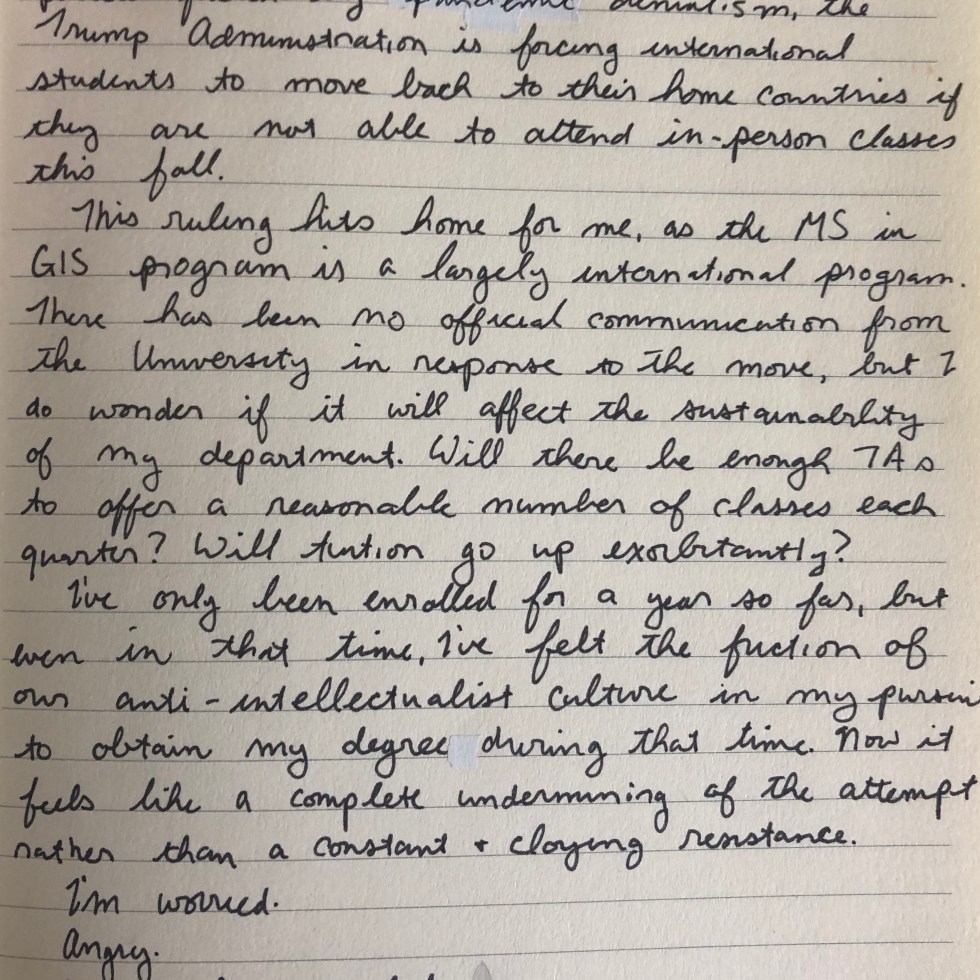 pandemic denialism, the
Trump Administration is forcing international
students to move back to their home countries if
they are not able to attend in-person classes
this fall.
This ruling hits home for me, as the MS in
GIS program is a largely international program.
There has been no official communication from
the University in response to the move, but I
do wonder if it will affect the sustainability
of my department. Will there be enough TAs
to offer a reasonable number of classes each
quarter? Will tuition go up exorbitantly?
I've only been enrolled for a year so far, but
even in that time, I've felt the friction of
our anti-intellectualist culture in my pursui
to obtain my degree during that time. Now it
feels like a complete undermining of the attempt
rather than a constant + cloying resistance.
I'm worried.
Angry.